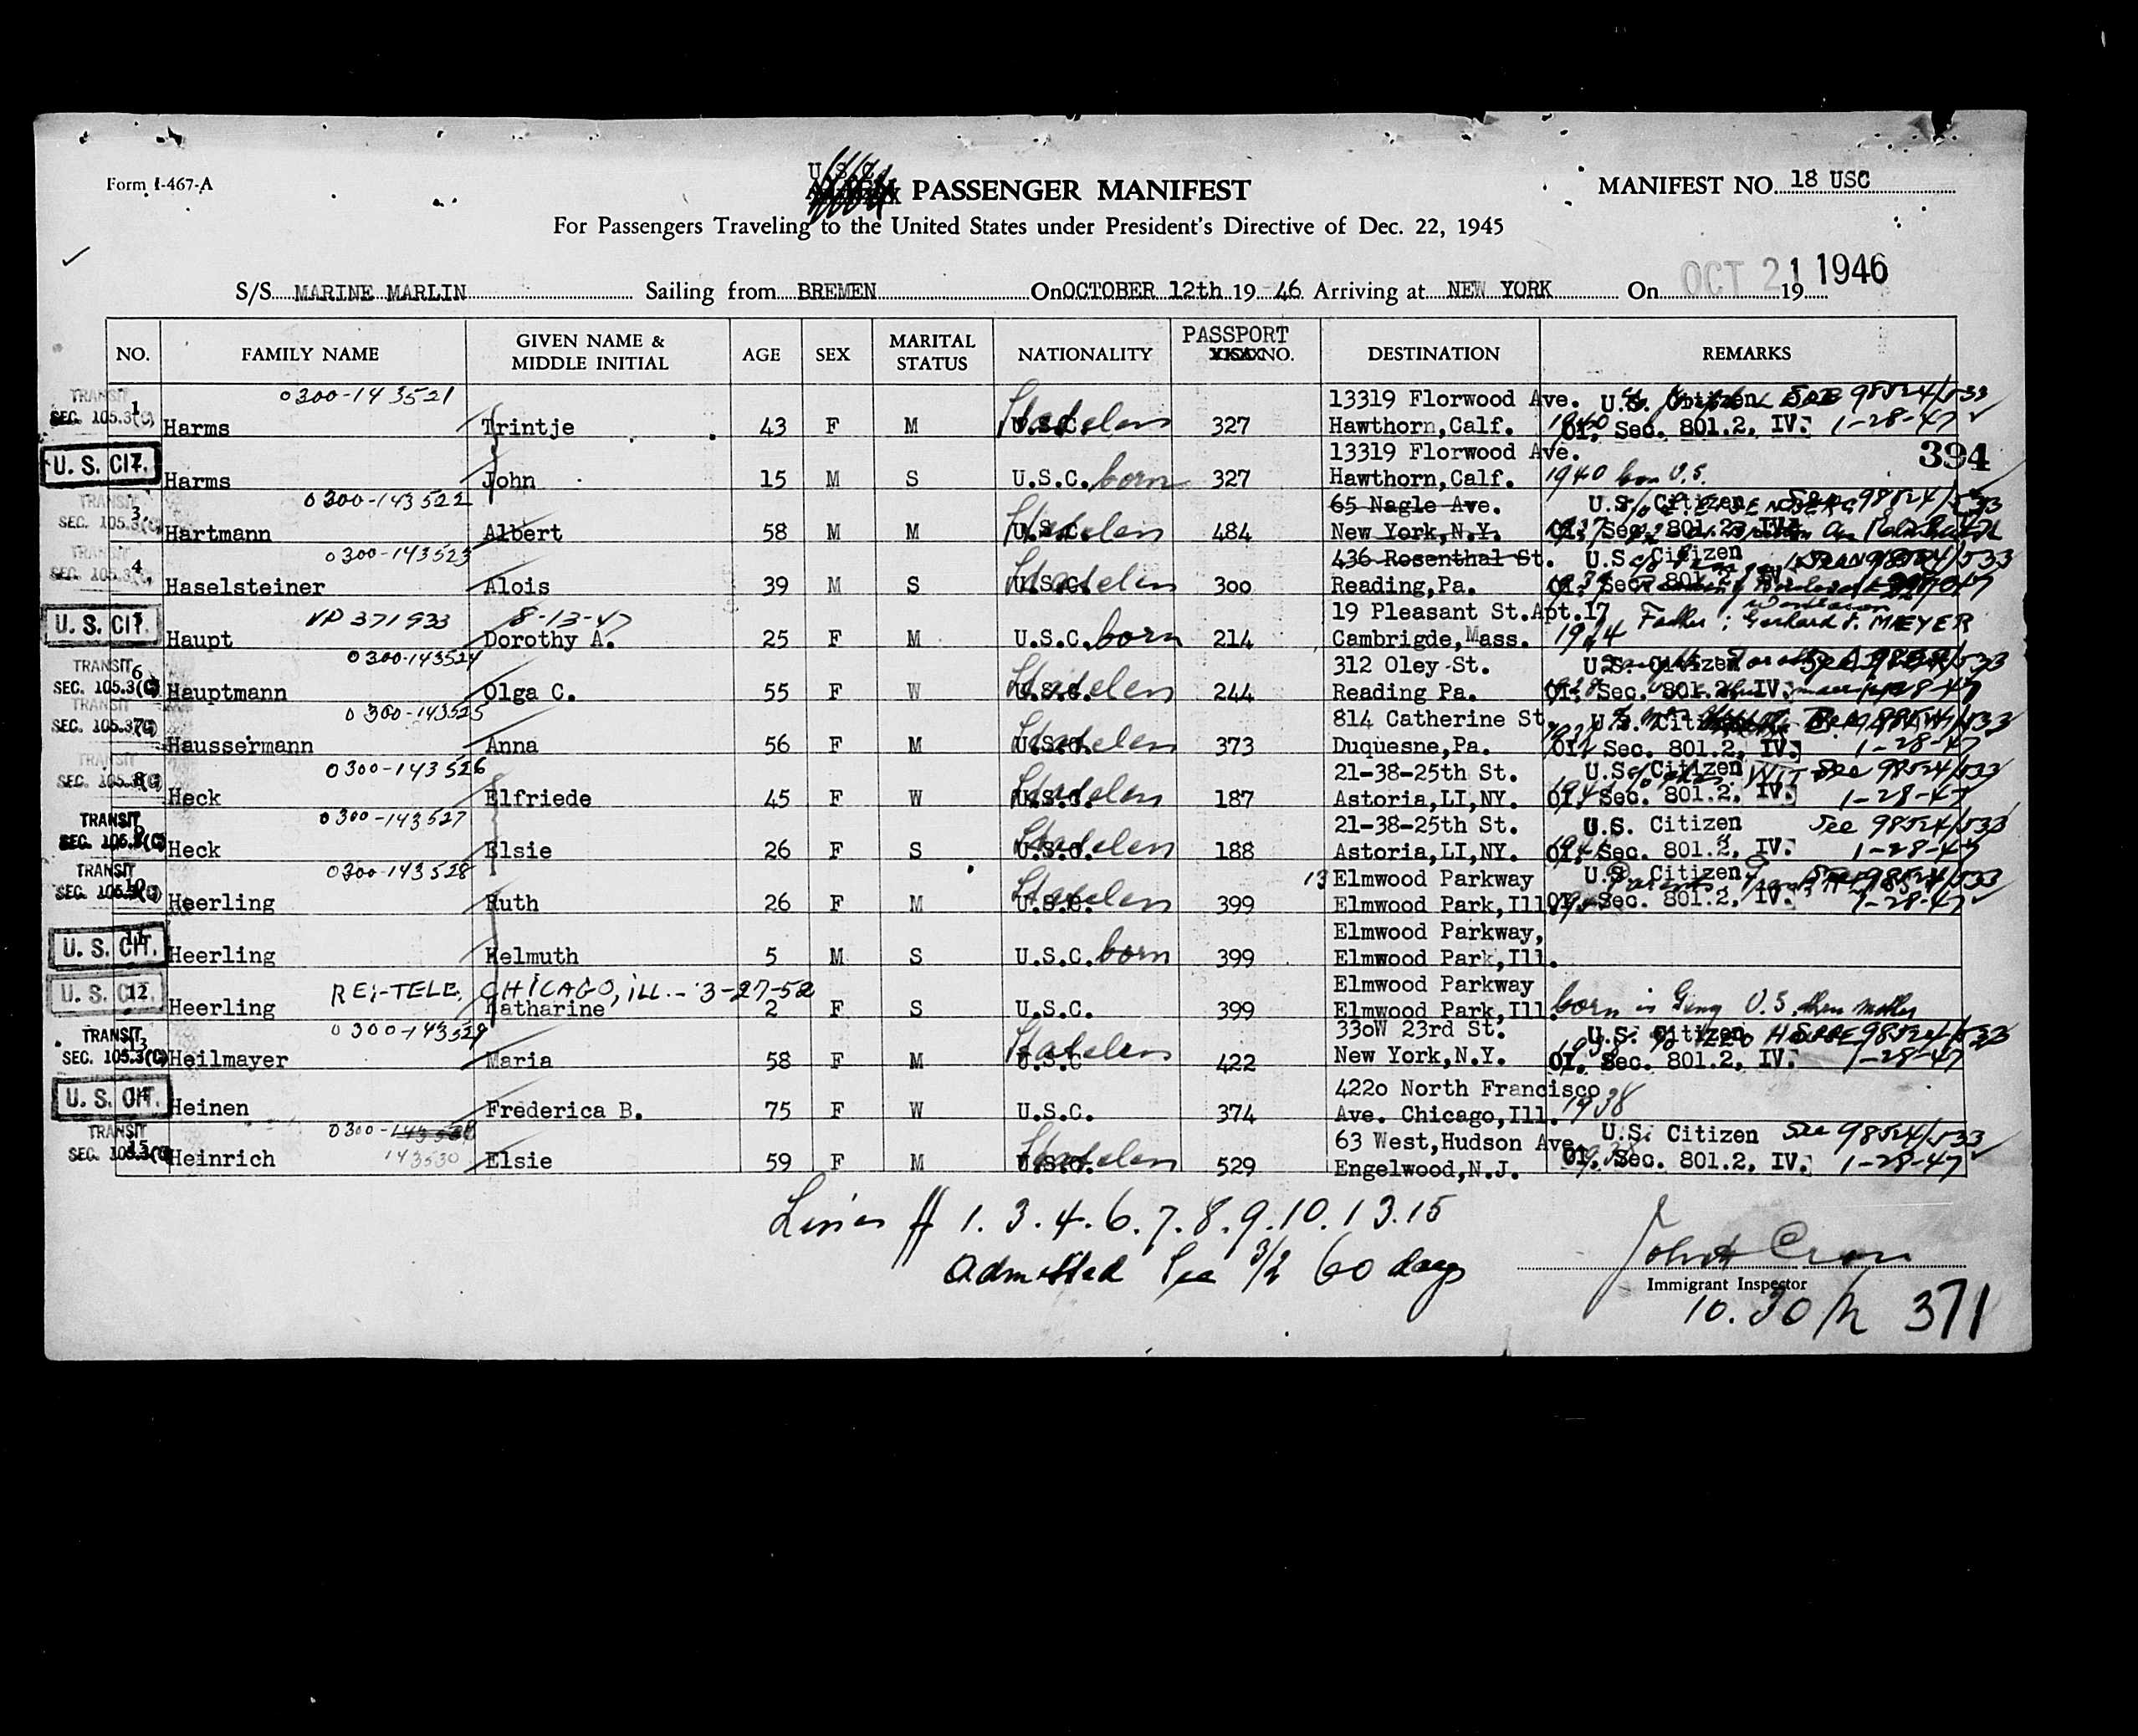 Form I-467-A
U.S.C. PASSENGER MANIFEST
MANIFEST NO. 18 USC
For Passengers Traveling to the United States under President's Directive of Dec. 22, 1945
S/S MARINE MARLIN Sailing from BREMEN On OCTOBER 12th 19 46 Arriving at NEW YORK On OCT 21 1946 19
NO. FAMILY NAME GIVEN NAME & MIDDLE INITIAL AGE SEX MARITAL STATUS NATIONALITY PASSPORT NO. DESTINATION REMARKS
TRANSIT 0300-143521 13319 Florwood Ave. U.S. Citizen See 98524/533
SEC. 105.3(C) 1 Harms Trintje 43 F M U.S.C. 327 Hawthorn,Calf. 1940 OI. Sec. 801.2, IV. 1-28-47
394
U. S. CIT. 13319 Florwood Ave.
Harms John 15 M S U.S.C. born 327 Hawthorn,Calf. 1940 born U.S.
TRANSIT 0300-143522 65 Nagle Ave. U.S. Citizen See 98524/533
SEC. 105.3(C) 3. Hartmann Albert 58 M M U.S.C. 484 New York,N.Y. 1937 Sec. 801.2
TRANSIT 0300-143523 436 Rosenthal St. U.S. Citizen See 98524/533
SEC. 105.3(C) 4. Haselsteiner Alois 39 M S U.S.C. 300 Reading,Pa. OI. Sec. 801.2
U. S. CIT. VP 371933 8-13-47 19 Pleasant St.Apt.17 Father: Gerhard F. MEYER
Haupt Dorothy A. 25 F M U.S.C. born 214 Cambrigde,Mass.
TRANSIT 0300-143524 312 Oley St. U.S. Citizen See 98524/533
SEC. 105.3(C) 6 Hauptmann Olga C. 55 F W U.S.C. 244 Reading Pa. OI. Sec. 801.2, IV. 1-28-47
TRANSIT 0300-143525 814 Catherine St. U.S. Citizen 98524/533
SEC. 105.3(C) 7 Haussermann Anna 56 F M U.S.C. 373 Duquesne,Pa. OI. Sec. 801.2, IV. 1-28-47
TRANSIT 0300-143526 21-38-25th St. U.S. Citizen See 98524/533
SEC. 105.3(C) 8 Heck Elfriede 45 F W U.S.C. 187 Astoria,LI,NY. OI. Sec. 801.2, IV. 1-28-47
TRANSIT 0300-143527 21-38-25th St. U.S. Citizen See 98524/533
SEC. 105.3(C) 9 Heck Elsie 26 F S U.S.C. 188 Astoria,LI,NY. OI. Sec. 801.2, IV. 1-28-47
TRANSIT 0300-143528 13 Elmwood Parkway U.S. Citizen See 98524/533
SEC. 105.3(C) 10 Heerling Ruth 26 F M U.S.C. 399 Elmwood Park,Ill. OI. Sec. 801.2, IV. 1-28-47
U. S. CIT. 11 Elmwood Parkway,
Heerling Helmuth 5 M S U.S.C. born 399 Elmwood Park,Ill.
U. S. CIT. 12 RE:-TELE. CHICAGO, ILL. - 3-27-52 Elmwood Parkway
Heerling Katharine 2 F S U.S.C. 399 Elmwood Park,Ill. born in Germy U.S. then mother
TRANSIT 0300-143529 330W 23rd St. U.S. Citizen See 98524/533
SEC. 105.3(C) 13 Heilmayer Maria 58 F M U.S.C 422 New York,N.Y. OI. Sec. 801.2, IV. 1-28-47
U. S. CIT. 14 4220 North Francisco
Heinen Frederica B. 75 F W U.S.C. 374 Ave. Chicago,Ill. 1938
TRANSIT 0300-143530 63 West,Hudson Ave. U.S. Citizen See 98524/533
SEC. 105.3(C) 15 Heinrich 143530 Elsie 59 F M U.S.C. 529 Engelwood,N.J. OI. Sec. 801.2, IV. 1-28-47
Lines # 1. 3. 4. 6. 7. 8. 9. 10. 13. 15
Admitted Sec 3/2 60 days
Immigrant Inspector
10.30/ 371